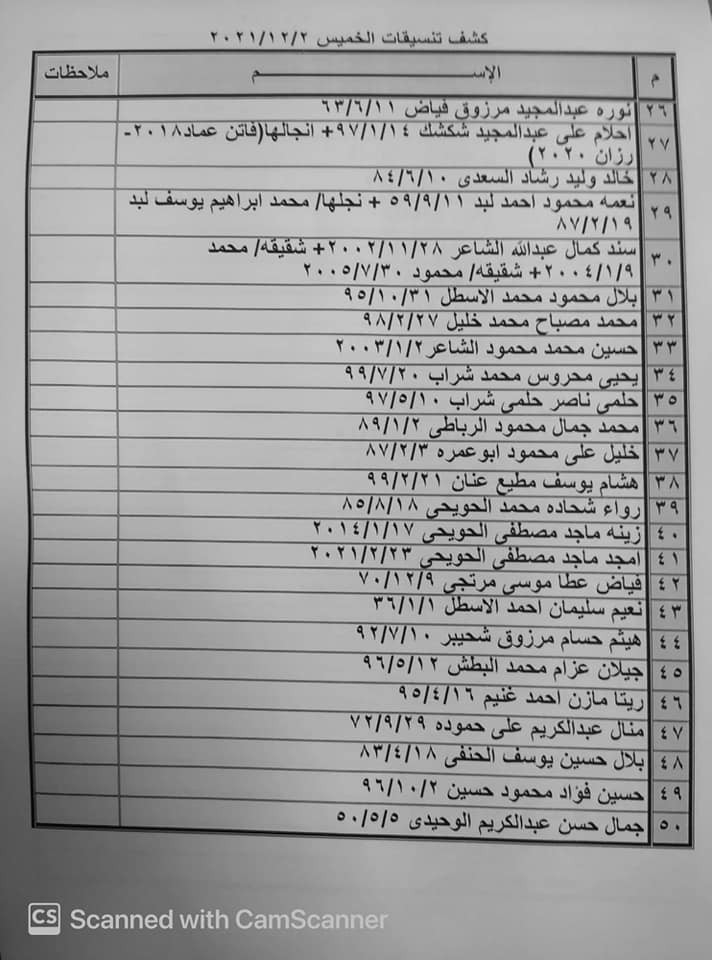 كشف تنسيقات الخميس ٢٠٢١/١٢/٢
م الإســـم ملاحظات
٢٦ نوره عبدالمجيد مرزوق فياض ٦٣/٦/١١
٢٧ احلام على عبدالمجيد شكشك ٩٧/١/١٤+ انجالها(فاتن عماد٢٠١٨-
رزان ٢٠٢٠)
٢٨ خالد وليد رشاد السعدى ٨٤/٦/١٠
٢٩ نعمه محمود احمد لبد ٥٩/٩/١١ + نجلها/ محمد ابراهيم يوسف لبد
٨٧/٢/١٩
٣٠ سند كمال عبدالله الشاعر ٢٠٠٢/١١/٢٨+ شقيقه/ محمد
٢٠٠٤/١/٩+ شقيقه/ محمود ٢٠٠٥/٧/٣٠
٣١ بلال محمود محمد الاسطل ٩٥/١٠/٣١
٣٢ محمد مصباح محمد خليل ٩٨/٢/٢٧
٣٣ حسين محمد محمود الشاعر٢٠٠٣/١/٢
٣٤ يحيى محروس محمد شراب ٩٩/٧/٢٠
٣٥ حلمى ناصر حلمى شراب ٩٧/٥/١٠
٣٦ محمد جمال محمود الرباطى ٨٩/١/٢
٣٧ خليل على محمود ابوعمره ٨٧/٢/٣
٣٨ هشام يوسف مطيع عنان ٩٩/٢/٢١
٣٩ رواء شحاده محمد الحويحى ٨٥/٨/١٨
٤٠ زينه ماجد مصطفى الحويحى ٢٠١٤/١/١٧
٤١ امجد ماجد مصطفى الحويحى ٢٠٢١/٢/٢٣
٤٢ فياض عطا موسى مرتجى ٧٠/١٢/٩
٤٣ نعيم سليمان احمد الاسطل ٣٦/١/١
٤٤ هيثم حسام مرزوق شحيبر ٩٢/٧/١٠
٤٥ جيلان عزام محمد البطش ٩٦/٥/١٢
٤٦ ريتا مازن احمد غنيم ٩٥/٤/١٦
٤٧ منال عبدالكريم على حموده ٧٢/٩/٢٩
٤٨ بلال حسين يوسف الحنفى ٨٣/٤/١٨
٤٩ حسين فؤاد محمود حسين ٩٦/١٠/٢
٥٠ جمال حسن عبدالكريم الوحيدى ٥٠/٥/٥
CS Scanned with CamScanner